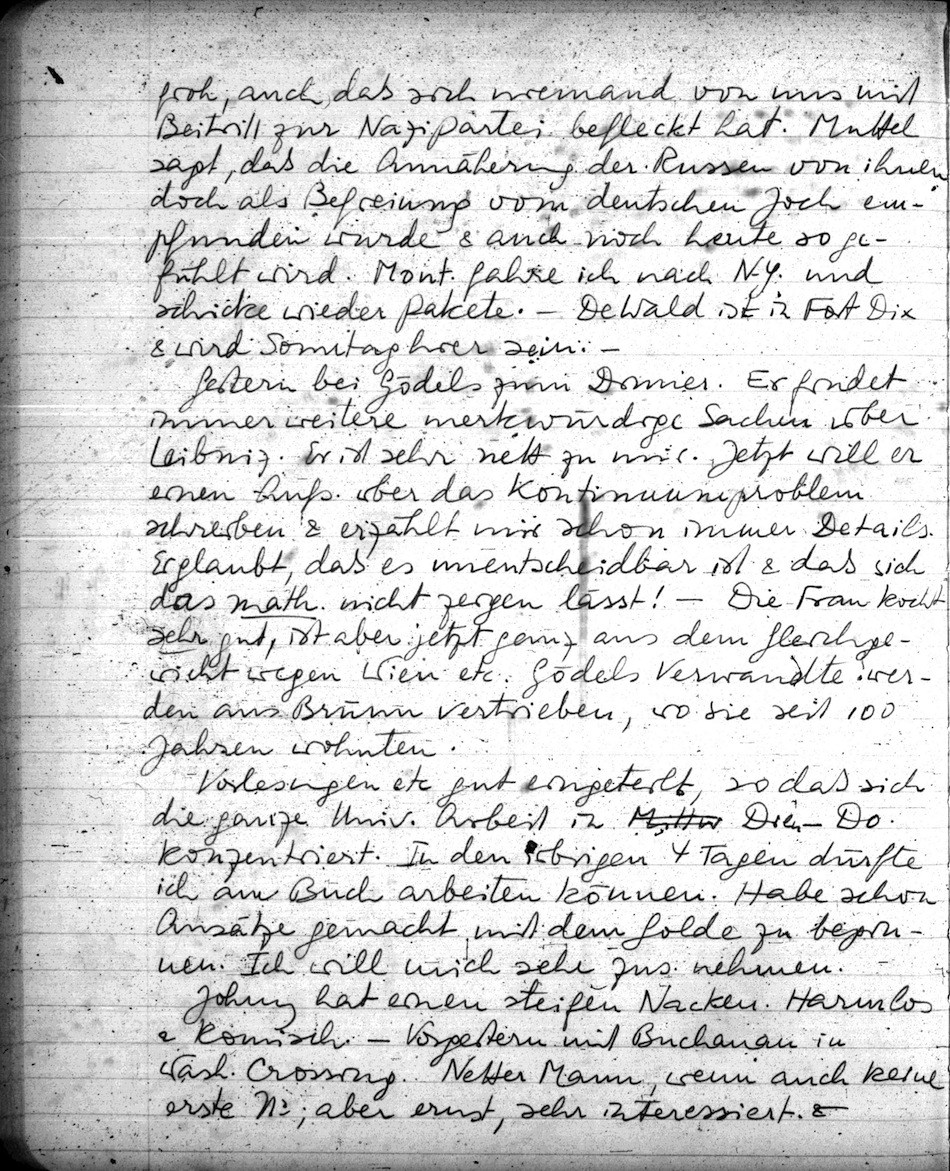 froh, auch, daß sich niemand von uns mit
Beitritt zur Nazipartei befleckt hat. Muttel
sagt, daß die Annäherung der Russen von ihnen
doch als Befreiung vom deutschen Joch em-
pfunden wurde & auch noch heute so ge-
fühlt wird. Mont. fahre ich nach N.Y. und
schicke wieder Pakete. – DeWald ist in Fort Dix
& wird Sonntag hier sein. –
Gestern bei Gödels zum Dinner. Er findet
immer weitere merkwürdige Sachen über
Leibniz. Er ist sehr nett zu mir. Jetzt will er
einen Aufs. über das Kontinuumproblem
schreiben & erzählt mir schon immer Details.
Er glaubt, daß es unentscheidbar ist & daß sich
das math. nicht zeigen lässt! – Die Frau kocht
sehr gut, ist aber jetzt ganz aus dem Gleichge-
wicht wegen Wien etc. Gödels Verwandte wer-
den aus Brünn vertrieben, wo sie seit 100
Jahren wohnten.
Vorlesungen etc gut eingeteilt, so daß sich
die ganze Univ. Arbeit in Dien – Do.
konzentriert. In den übrigen 4 Tagen dürfte
ich am Buch arbeiten können. Habe schon
Ansätze gemacht mit dem Golde zu begin-
nen. Ich will mich sehr zus. nehmen.
Johnny hat einen steifen Nacken. Harmlos
& komisch. – Vorgestern mit Buchanan in
Wash. Crossing. Netter Mann, wenn auch keine
erste No; aber ernst, sehr interessiert. &